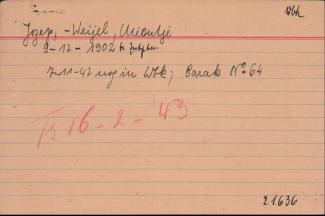 Wbk
Jozep, -Weijel, Mientje
9-12-1902 te Zutphen
7-11-42 nog in Wbk, Barak No 64
Tr 16-2-'43
21636